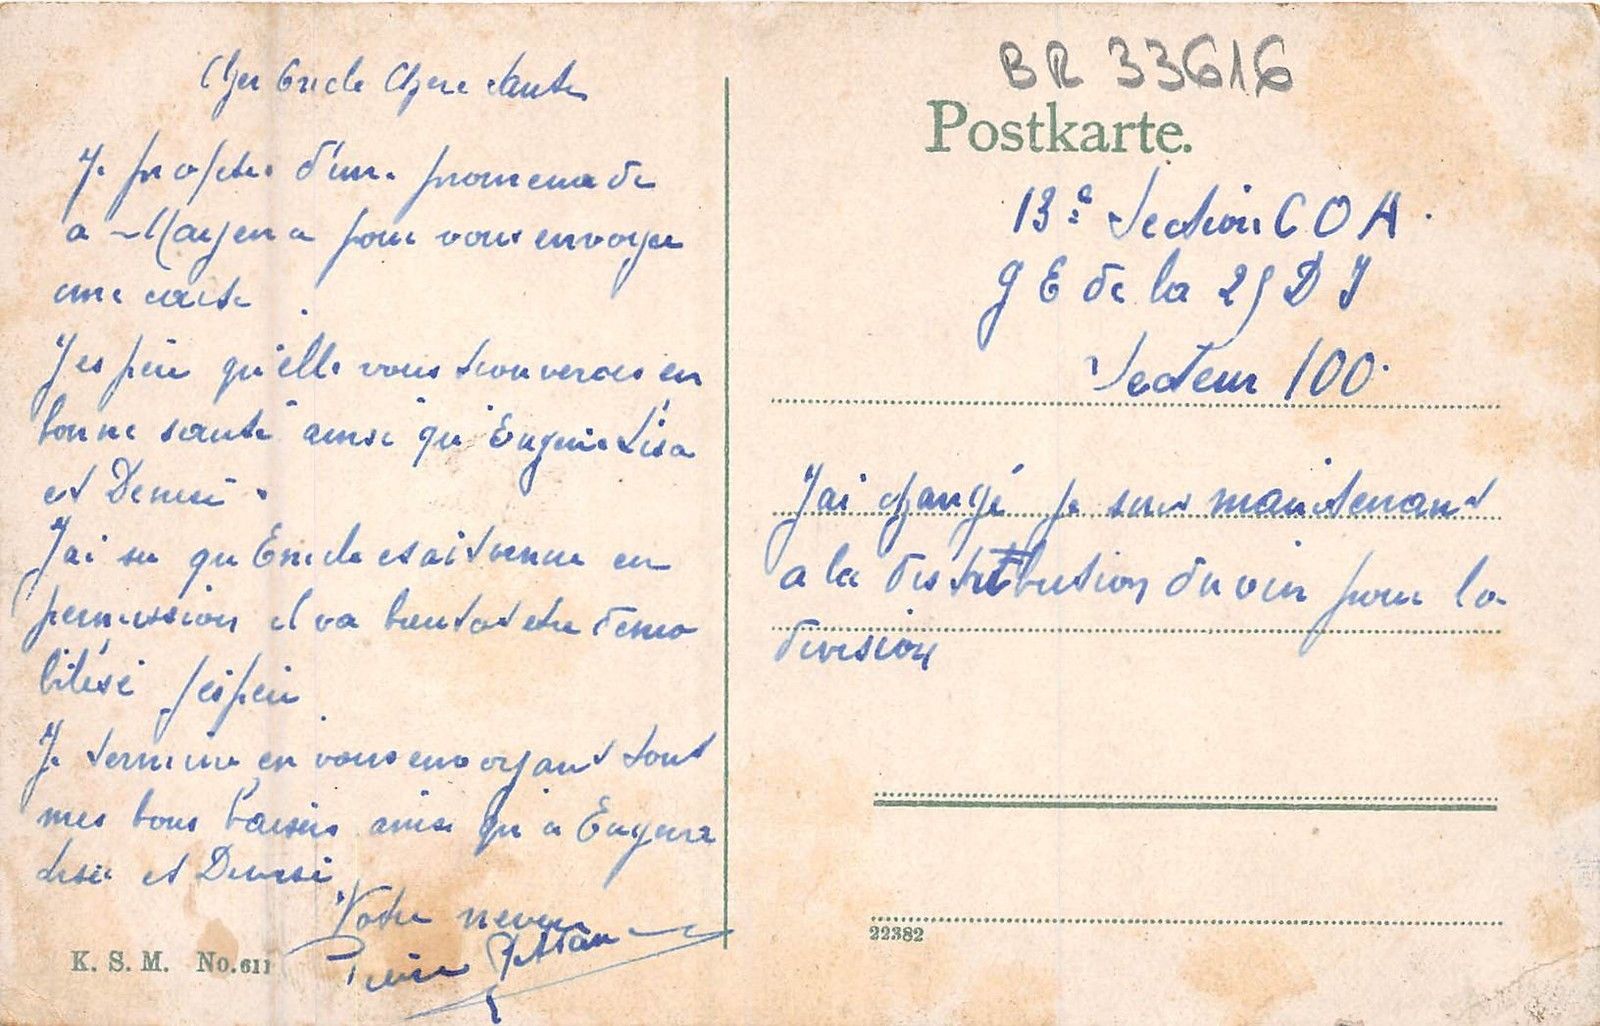 Cher Oncle Chere tante
Je profite d'une promenade
a Mayence pour vous envoyer
une carte
J'espere qu'elle vous trouveras en
bonne santé ainsi qu'Eugenie Lisa
et Denise.
J'ai su qu Emile etait venu en
permission il va bientot etre démo
bilisé j'espere
Je termine en vous envoyant tout
mes bons baisers ainsi qu'a Eugenie
Lisa et Denise
Votre neveu
Pierre
K. S. M. No. 611
BR 33616
Postkarte.
13e Section C O A.
G E de la 25 D I
Secteur 100.
J'ai changé je suis maintenant
a la distribution du vin pour la
division
22382